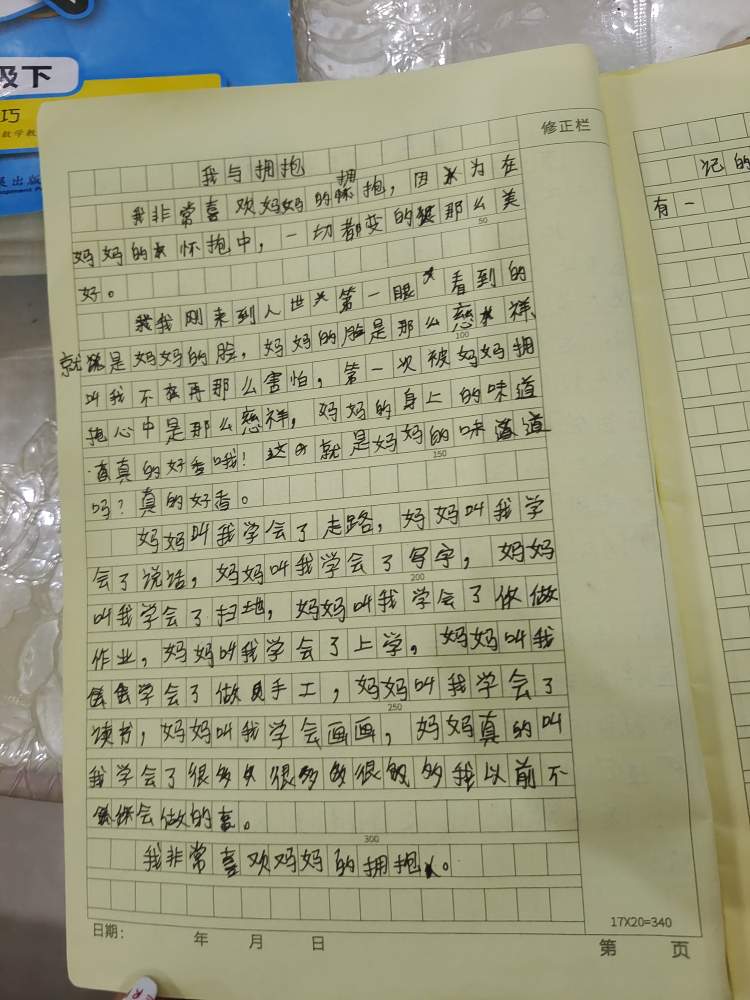 级下
巧
修正栏
我与拥抱
我非常喜欢妈妈的拥抱，因为在
妈妈的怀抱中，一切都变的那么美
好。
50
我刚来到人世第一眼看到的
就是妈妈的脸，妈妈的脸是那么慈祥、
100
叫我不再那么害怕，第一次被妈妈拥
抱心中是那么慈祥，妈妈的身上的味道
真的好香哦！这就是妈妈的味道
150
吗？真的好香。
妈妈叫我学会了走路，妈妈叫我学
会了说话，妈妈叫我学会了写字，妈妈
200
叫我学会了扫地，妈妈叫我学会了做
作业，妈妈叫我学会了上学，妈妈叫我
学会了做手工，妈妈叫我学会了
250
读书，妈妈叫我学会画画，妈妈真的叫
我学会了很多很多很多我以前不
会做的。
300
我非常喜欢妈妈的拥抱。
17X20=340
日期： 年 月 日
第 页
记的
有一